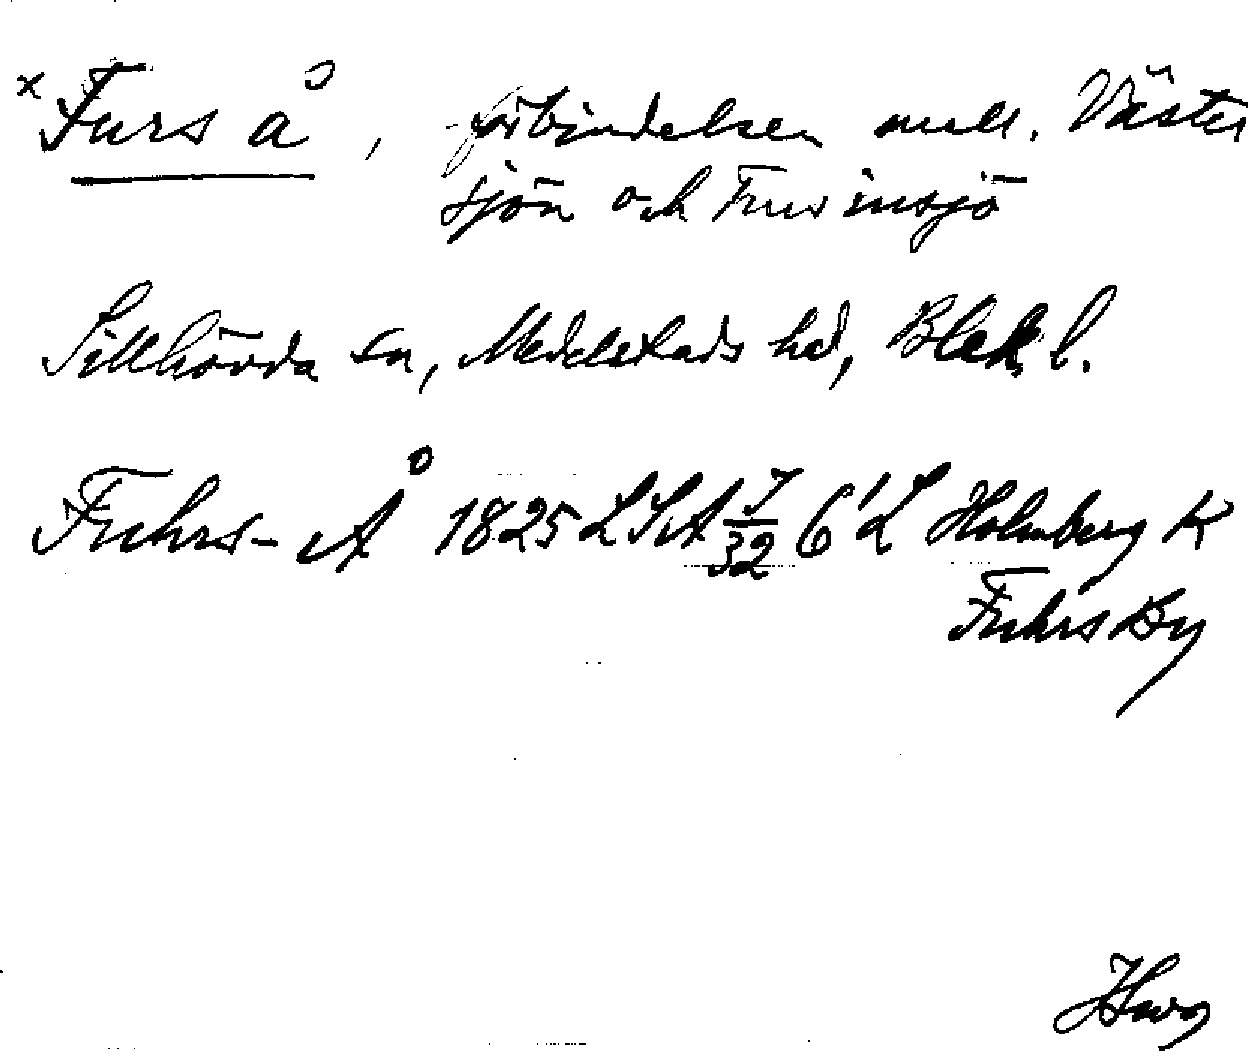 x Furs å, förbindelsen mell. Väster
sjön och Furs insjö
Sillhövda sn, Medelstads hd, Blek. l.
Fuhrs-Å 1825 LSA 7/32 6' L Holmberg K
Fuhrs By